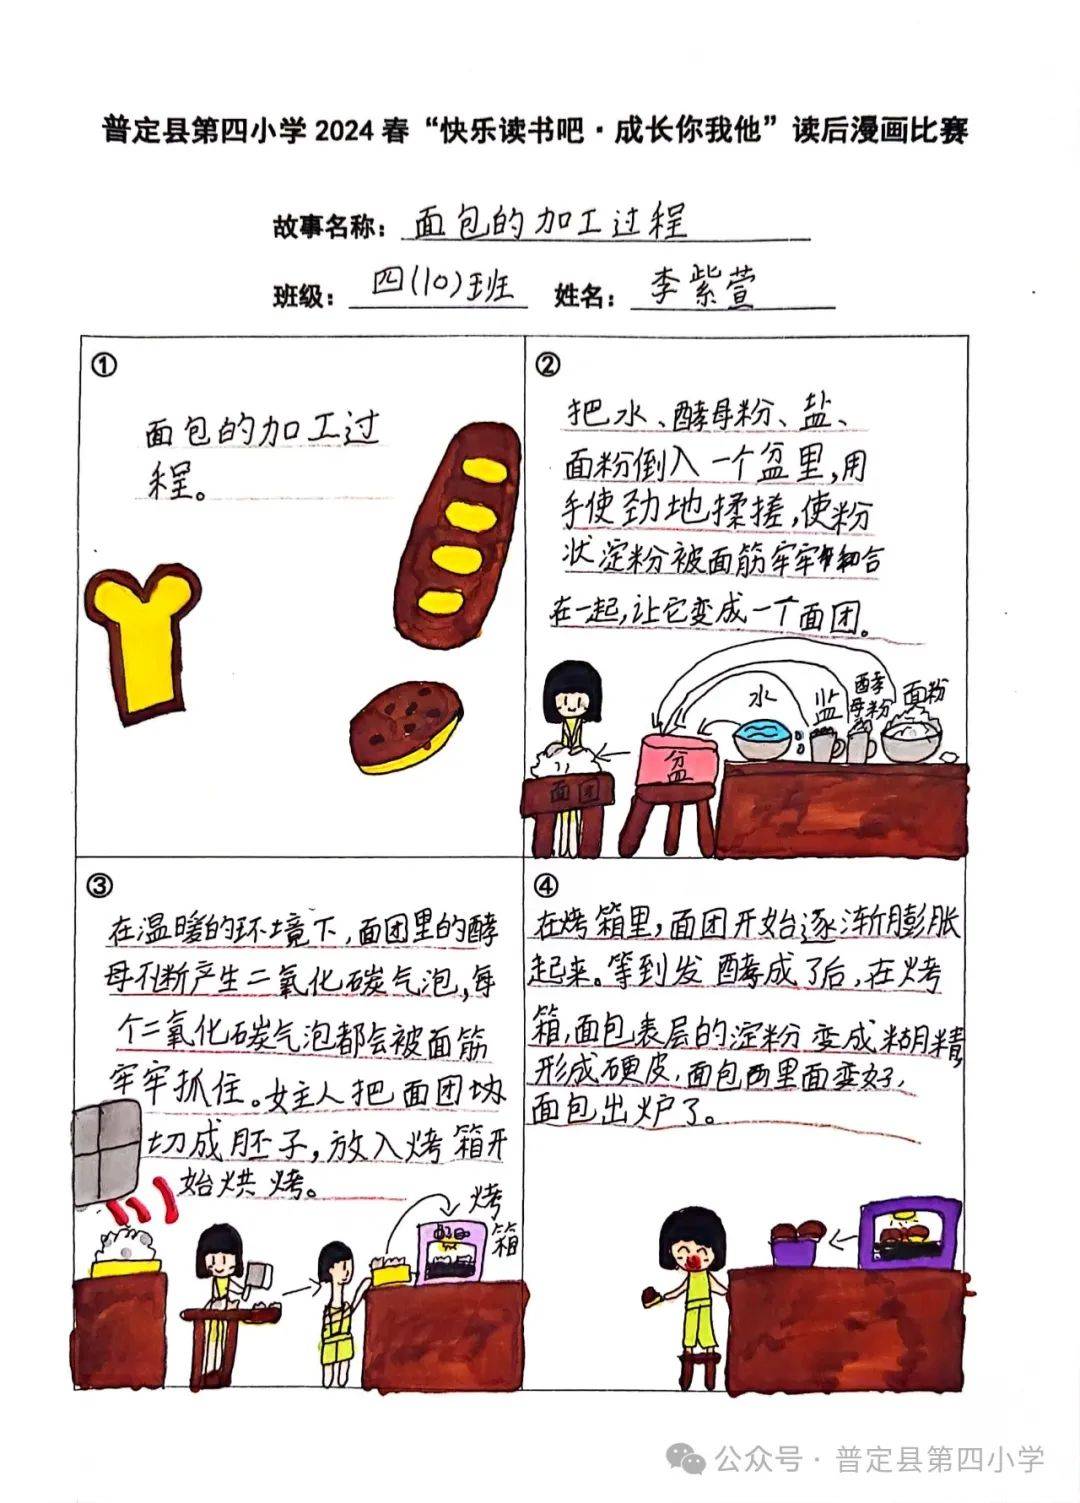 普定县第四小学2024春“快乐读书吧·成长你我他”读后漫画比赛
故事名称：面包的加工过程
班级：四(10)班 姓名：李紫萱
①
面包的加工过
程。
②
把水、酵母粉、盐、
面粉倒入一个盆里,用
手使劲地揉搓,使粉
状淀粉被面筋牢牢和合
在一起,让它变成一个面团。
水
监
酵
母粉
面粉
盆
面团
③
在温暖的环境下,面团里的酵
母不断产生二氧化碳气泡,每
个二氧化碳气泡都会被面筋
牢牢抓住。女主人把面团块
切成胚子,放入烤箱开
始烘烤。
烤
箱
④
在烤箱里,面团开始逐渐膨胀
起来。等到发酵成了后,在烤
箱,面包表层的淀粉变成糊精,
形成硬皮,面包里面变好,
面包出炉了。
公众号·普定县第四小学